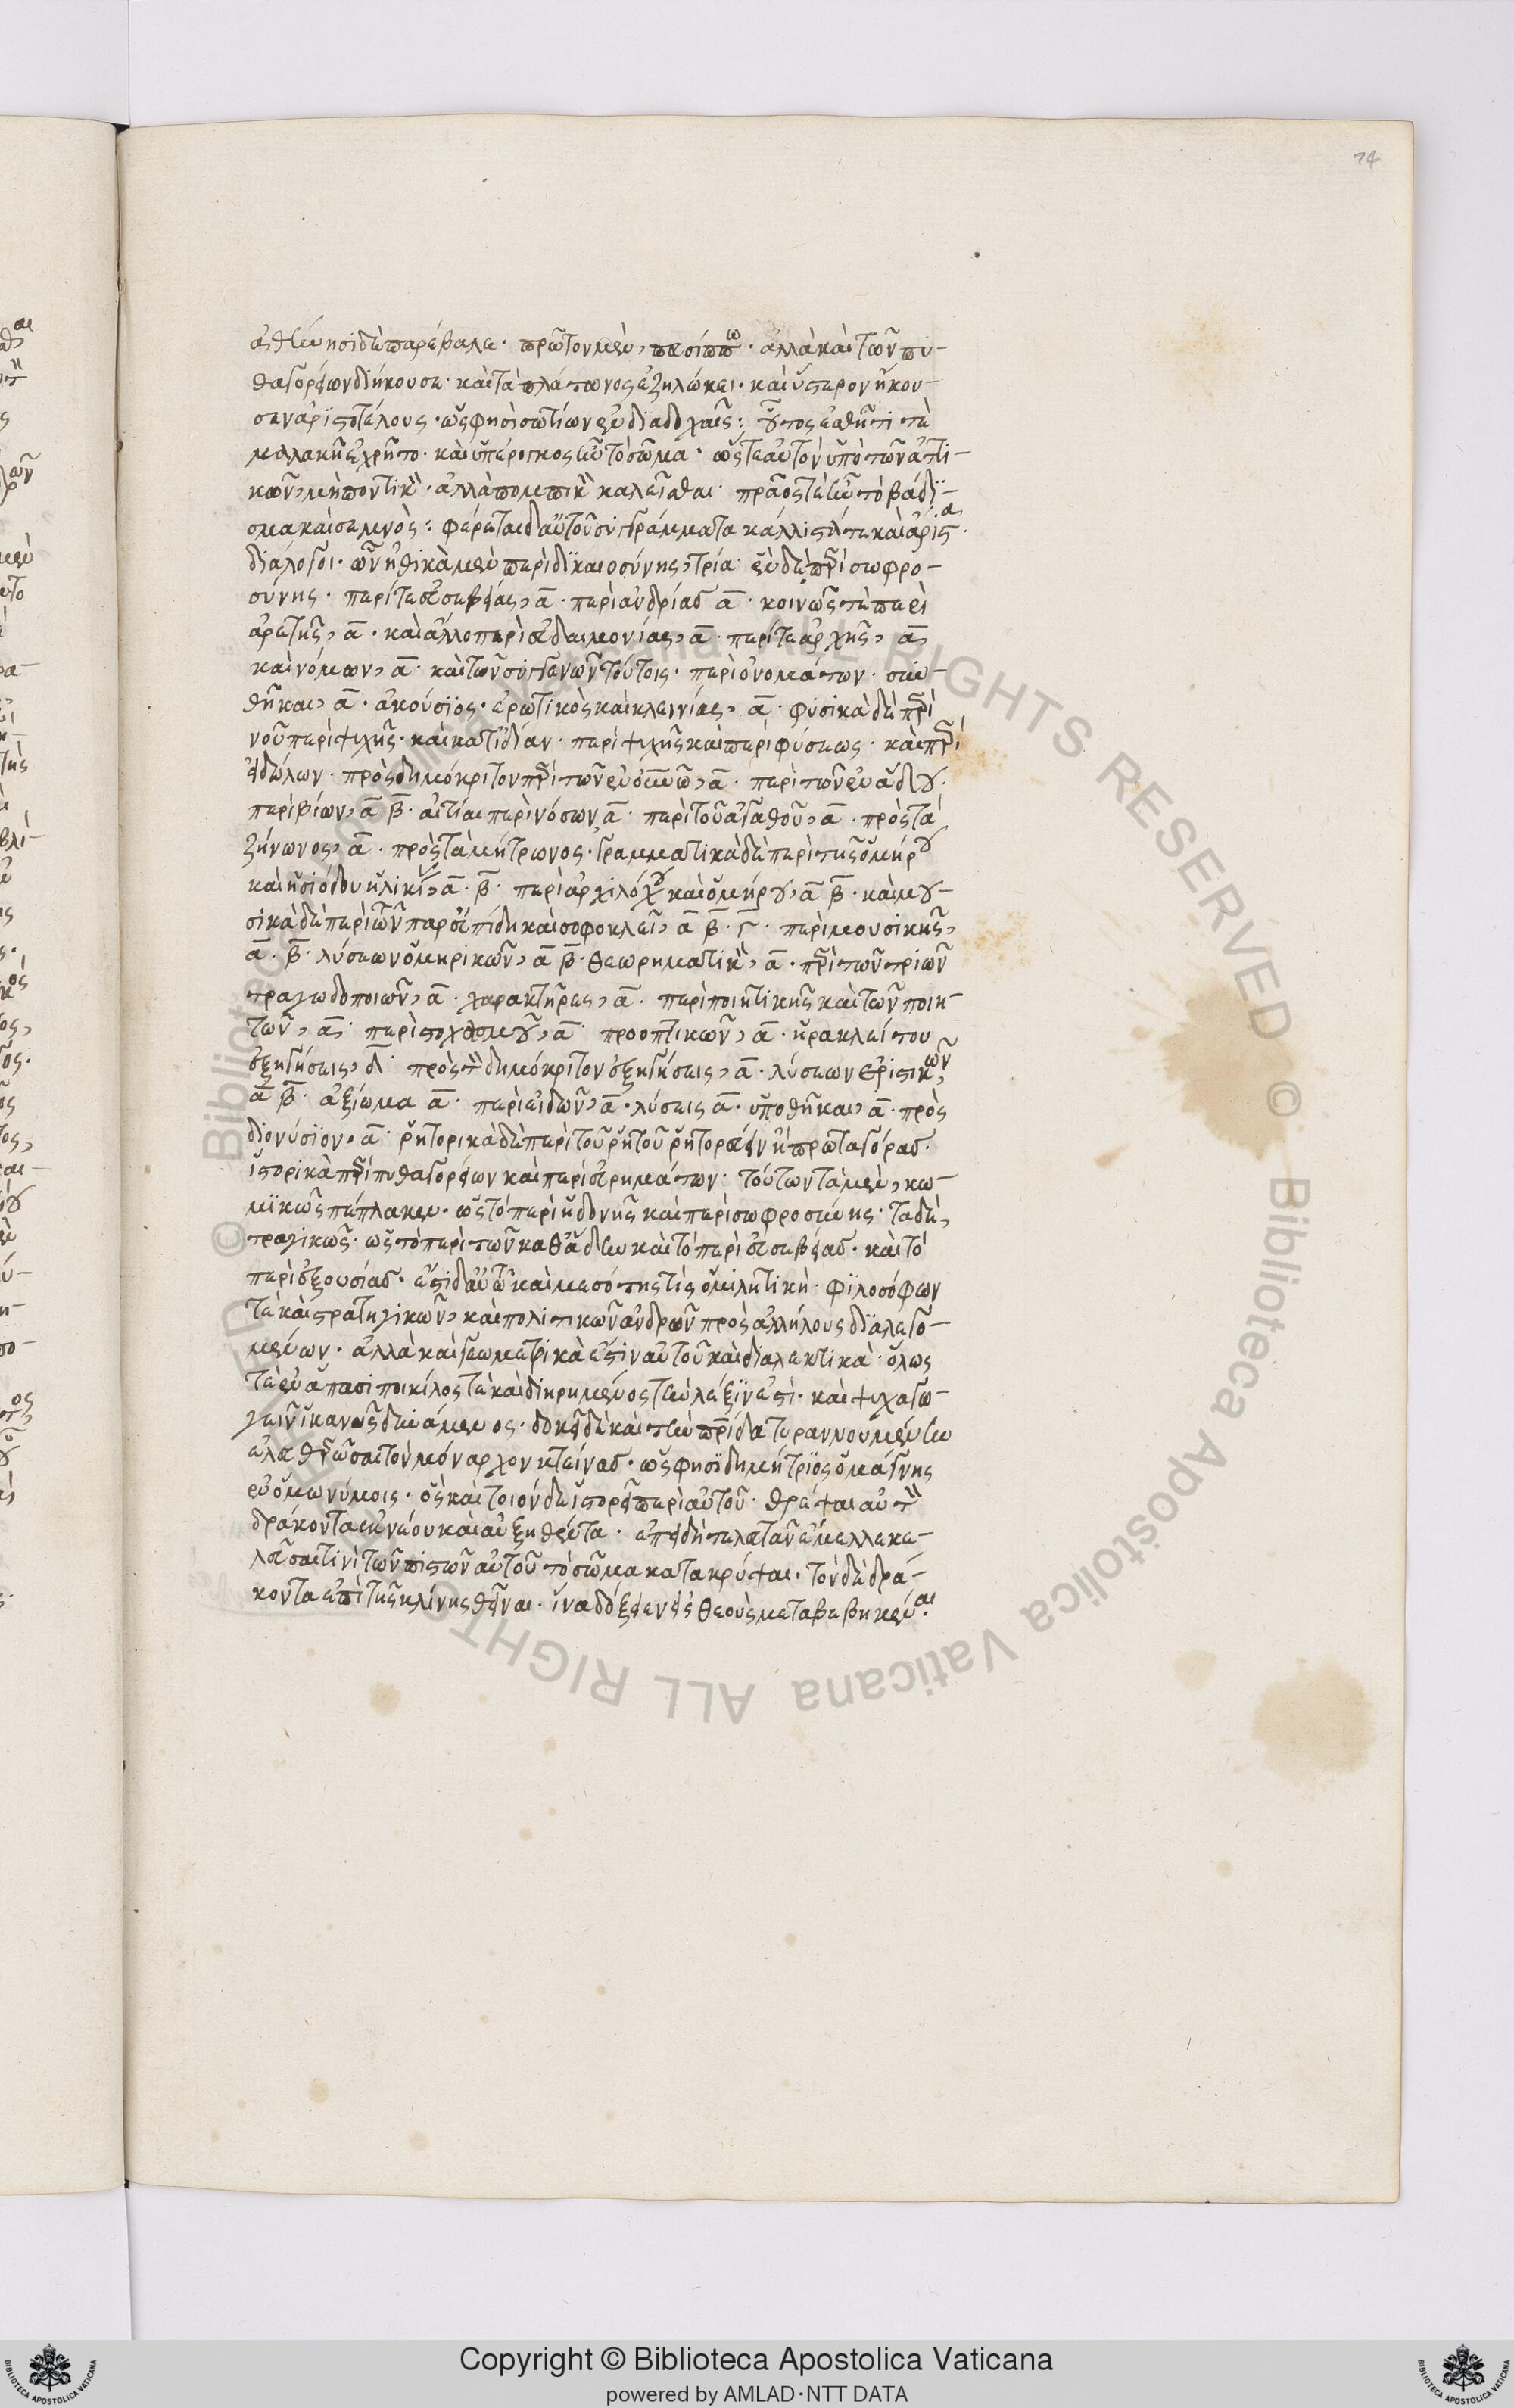 74
ἀθήνησι δὲ παρέβαλε· πρῶτον μὲν, πευσίππω· ἀλλὰ καὶ τῶν πυ-
θαγορείων διήκουσε· καὶ τὰ πλάτωνος ἐζηλώκει· καὶ ὕστερον ἤκου-
σεν ἀριστοτέλους· ὥς φησὶ σωτίων ἐν διαδοχαῖς: οὗτος ἐσθῆτί τε
μαλακῆ ἐχρῆτο· καὶ ὑπέρογκος ἦν τὸ σῶμα· ὥστε αὐτὸν ὑπὸ τῶν ἀττι-
κῶν, μὴ ποντικὸν· ἀλλὰ πομπικὸν καλεῖσθαι· πρᾶος τὲ ἦν τὸ βάδι-
σμα καὶ σεμνὸς: φέρεται δ' αὐτοῦ συγγράμματα κάλλιστά τε καὶ ἄριστα·
διάλογοι· ὧν ἠθικὰ μὲν περὶ δικαιοσύνης, τρία· ἓν δὲ περὶ σωφρο-
σύνης· περί τε εὐσεβείας, α· περὶ ἀνδρίας α· κοινῶς τὲ περὶ
ἀρετῆς, α· καὶ ἄλλο περὶ εὐδαιμονίας, α· περί τε ἀρχῆς, α,
καὶ νόμων, α· καὶ τῶν συγγενῶν τούτοις· περὶ ὀνομάτων· συν-
θῆκαι, α· ἀκούσιος· ἐρωτικὸς καὶ κλεινίας, α· φυσικὰ δὲ περὶ
νοῦ περὶ ψυχῆς· καὶ κατιδίαν· περὶ ψυχῆς καὶ περὶ φύσεως· καὶ περὶ
εἰδώλων· πρὸς δημόκριτον περὶ τῶν ἐν οὐνῶ, α· περὶ τῶν ἐν ἅδου·
περὶ βίων, α β· αἰτίαι περὶ νόσων α· περὶ τοῦ ἀγαθοῦ, α· πρὸς τὰ
ζήνωνος, α· πρὸς τὰ μήτρωνος· γραμματικὰ δὲ περὶ τῆς ὁμήρου
καὶ ἡσιόδου ἡλικίας, α· β· περὶ ἀρχιλόχου καὶ ὁμήρου, α β· καὶ μου-
σικὰ δὲ περὶ τῶν παρ' εὐριπίδη καὶ σοφοκλεῖ, α β· γ· περὶ μουσικῆς,
α· β· λύσεων ὁμηρικῶν, α β· θεωρηματικὸν, α· περὶ τῶν τριῶν
τραγωδοποιῶν, α· χαρακτῆρες, α· περὶ ποιητικῆς καὶ τῶν ποιη-
τῶν, α· περὶ στοχασμοῦ, α· προοπτικῶν, α· ἡρακλείτου
ἐξηγήσεις, δ· πρὸς τὸν δημόκριτον ἐξηγήσεις, α· λύσεων ἐριστικῶν,
α β· ἀξίωμα α· περὶ εἰδῶν, α· λύσεις α· ὑποθῆκαι, α· πρὸς
διονύσιον, α· ῥητορικὰ δὲ περὶ τοῦ ῥητορεύειν ἢ πρωταγόρας·
ἱστορικὰ περὶ πυθαγορείων καὶ περὶ εὑρημάτων· τούτων τὰ μὲν, κω-
μικῶς πέπλακεν· ὡς τὸ περὶ ἡδονῆς καὶ περὶ σωφροσύνης· τὰ δὲ,
τραγικῶς· ὡς τὸ περὶ τῶν καθ' ἅδην καὶ τὸ περὶ εὐσεβείας· καὶ τὸ
περὶ ἐξουσίας· ἔστι δ' αὐτῶ καὶ μεσότης τὶς ὁμιλητικὴ· φιλοσόφων
τὲ καὶ στρατηγικῶν, καὶ πολιτικῶν ἀνδρῶν πρὸς ἀλλήλους διαλεγο-
μένων· ἀλλὰ καὶ γεωμετρικὰ ἐστὶν αὐτοῦ καὶ διαλεκτικὰ· ὅλως
τὲ ἐν ἅπασι ποικίλος τὲ καὶ διηρημένος τὴν λέξιν ἐστὶ· καὶ ψυχαγω-
γεῖν ἱκανῶς δυνάμενος· δοκεῖ δὲ καὶ τὴν πατρίδα τυραννουμένην
ἐλευθερῶσαι τὸν μόναρχον κτείνας· ὥς φησι δημήτριος ὁ μάγνης
ἐν ὁμωνύμοις· ὃς καὶ τοιόνδε ἱστορεῖ περὶ αὐτοῦ· θρέψαι αὐτὸν
δράκοντα ἐκ νέου καὶ αὐξηθέντα· ἐπειδὴ τελευτᾶν ἔμελλε κε-
λεῦσαι τινὶ τῶν πιστῶν αὐτοῦ τὸ σῶμα κατακρύψαι· τὸν δὲ δρά-
κοντα ἐπὶ τῆς κλίνης θεῖναι· ἵνα δόξειεν εἰς θεοὺς μεταβεβηκέναι·
Copyright © Biblioteca Apostolica Vaticana
powered by AMLAD·NTT DATA